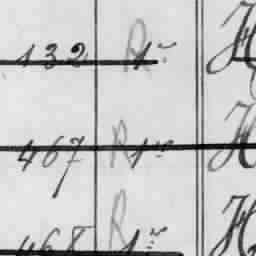 132 R 1r H
467 R 1r H
468 R 1r H